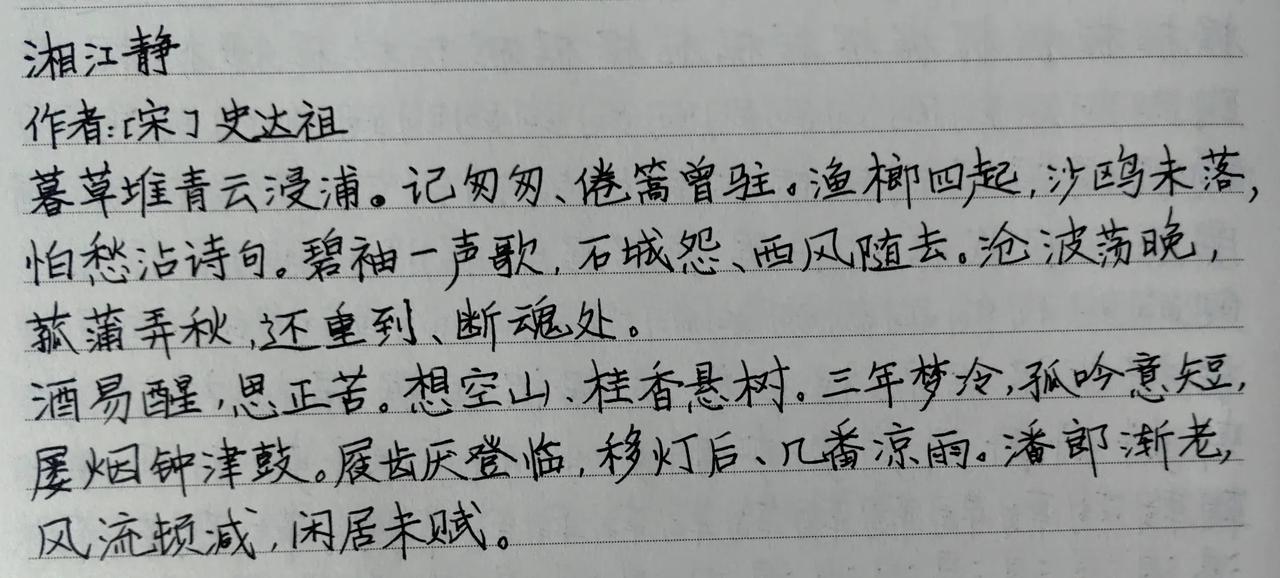 湘江静
作者:[宋]史达祖
暮草堆青云浸浦。记匆匆、倦篙曾驻。渔榔四起,沙鸥未落,
怕愁沾诗句。碧袖一声歌,石城怨、西风随去。沧波荡晚,
菰蒲弄秋,还重到、断魂处。
酒易醒,思正苦。想空山、桂香悬树。三年梦冷,孤吟意短,
屡烟钟津鼓。屐齿厌登临,移灯后、几番凉雨。潘郎渐老,
风流顿减,闲居未赋。